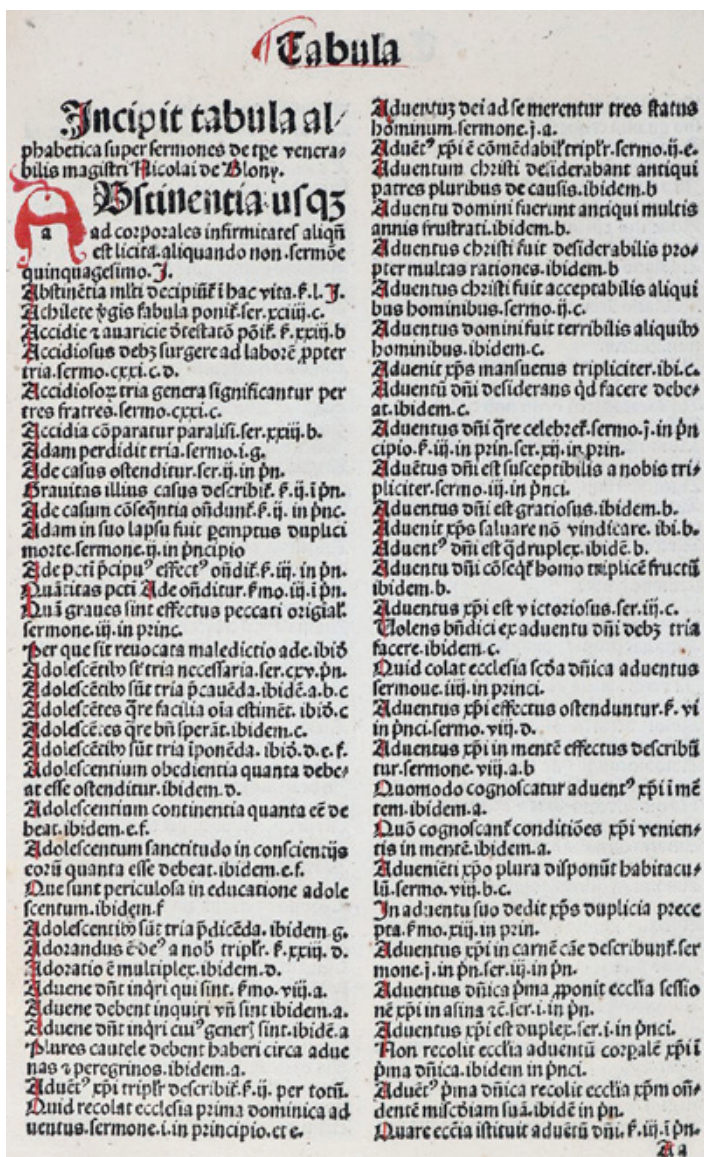 Tabula
Incipit tabula al⸗
phabetica super sermones de tp̄e venera⸗
bilis magistri Nicolai de Blony.
Abstinentia usqꝫ
a ad corporales infirmitates aliqñ
est licita. aliquando non. sermōe
quinquagesimo. J.
Abstinētia ml̄ti decipiūt̄ ī hac vita. ẜ. l. J.
Achilete ꝟgis fabula ponit̄. ser. xxiiij. c.
Accidie ⁊ auaricie d̄testatō pōit̄. ẜ. xxiij. b
Accidiosus debꝫ surgere ad laborē ꝓpter
tria. sermo. cxxi. c. d.
Accidiosoꝝ tria genera significantur per
tres fratres. sermo. cxxi. c.
Accidia cōparatur paralisi. ser. xxiij. b.
Adam perdidit tria. sermo. i. g.
Ade casus ostenditur. ser. ij. in p̄n.
Grauitas illius casus describit̄. ẜ. ij. ī p̄n.
Ade casum cōseq̄ntia on̄dunt̄. ẜ. ij. in p̄nc.
Adam in suo lapsu fuit ꝑemptus duplici
morte. sermone. ij. in p̄ncipio
Ade pcti p̄cipuꝰ effectꝰ on̄dit̄. ẜ. iij. in p̄n.
Quātitas pcti Ade on̄ditur. ẜmo. iij. ī p̄n.
Quā graues sint effectus peccati origial̄.
sermone. iij. in princ.
Per que sit reuocata maledictio ade. ibiō
Adolescētibꝰ st̄ tria necessaria. ser. cxv. p̄n.
Adolescētibꝰ sūt tria p̄cauēda. ibidē. a. b. c
Adolescētes q̄re facilia oīa estimēt. ibiō. c
Adolescētes q̄re bn̄ sperāt. ibidem. c.
Adolescētibꝰ sūt tria īponēda. ibiō. d. e. f.
Adolescentium obedientia quanta debe⸗
at esse ostenditur. ibidem. d.
Adolescentium continentia quanta eē de
beat. ibidem. e. f.
Adolescentum sanctitudo in conscientijs
eorū quanta esse debeat. ibidem. e. f.
Que sunt periculosa in educatione adole
scentum. ibidem. f
Adolescētibꝰ sūt tria p̄dicēda. ibidem g.
Adorandus ē deꝰ a nob̄ tripl̄r. ẜ. xxiij. d.
Adoratio ē multiplex. ibidem. d.
Aduene dn̄t inq̄ri qui sint. ẜmo. viij. a.
Aduene debent inquiri vn̄ sint ibidem. a.
Aduene dn̄t inq̄ri cuiꝰ generꝭ sint. ibidē. a
Plures cautele debent haberi circa adue
nas ⁊ peregrinos. ibidem. a.
Aduētꝰ xp̄i tripl̄r describit̄. ẜ. ij. per totū.
Quid recolat ecclesia prima dominica ad
uentus. sermone. i. in principio. et e.
Aduentuꝫ dei ad se merentur tres status
hominum. sermone. j. a.
Aduētꝰ xp̄i ē cōmēdabil̄ tripl̄r. sermo. ij. e.
Aduentum christi desiderabant antiqui
patres pluribus de causis. ibidem. b
Aduentu domini fuerunt antiqui multis
annis frustrati. ibidem. b.
Aduentus christi fuit desiderabilis pro⸗
pter multas rationes. ibidem. b
Aduentus christi fuit acceptabilis aliqui
bus hominibus. sermo. ij. c.
Aduentus domini fuit terribilis aliquibꝰ
hominibus. ibidem. c.
Aduenit xp̄s mansuetus tripliciter. ibi. c.
Aduentū dn̄i desiderans qd̄ facere debe⸗
at. ibidem. c.
Aduentus dn̄i q̄re celebret̄. sermo. j. in p̄n
cipio. ẜ. iij. in prin. ser. xij. in prin.
Aduētus dn̄i est susceptibilis a nobis tri⸗
pliciter. sermo. iij. in p̄nci.
Aduentus dn̄i est gratiosus. ibidem. b.
Aduenit xp̄s saluare nō vindicare. ibi. b.
Aduentꝰ dn̄i est q̄druplex. ibidē. b.
Aduentu dn̄i cōseq̄t̄ homo triplicē fructū
ibidem. b.
Aduentus xp̄i est victoriosus. ser. iij. c.
Volens bn̄dici ex aduentu dn̄i debꝫ tria
facere. ibidem. c.
Quid colat ecclesia scd̄a dn̄ica aduentus
sermone. iiij. in princi.
Aduentus xp̄i effectus ostenduntur. ẜ. vi
in p̄nci. sermo. viij. d.
Aduentus xp̄i in mentē effectus describū
tur. sermone. viij. a. b
Quomodo cognoscatur aduentꝰ xp̄i ī mē
tem. ibidem. a.
Quō cognoscant̄ conditiōes xp̄i venien⸗
tis in mentē. ibidem. a.
Aduenīēti xp̄o plura disponūt habitacu⸗
lū. sermo. viij. b. c.
In aduentu suo dedit xp̄s duplicia prece
pta. ẜmo. xiij. in prin.
Aduentus xp̄i in carnē cāe describunt̄. ser
mone. j. in p̄n. ser. iij. in p̄n.
Aduentus dn̄ica p̄ma ꝓponit eccl̄ia sessio
nē xp̄i in asina ⁊c̄. ser. i. in p̄n.
Aduentus xp̄i est duplex. ser. i. in p̄nci.
Non recolit eccl̄ia aduentū corꝑalē xp̄i ī
p̄ma dn̄ica. ibidem in p̄nci.
Aduētꝰ p̄ma dn̄ica recolit eccl̄ia xp̄m on̄⸗
dentē miscd̄iam suā. ibidē in p̄n.
Quare ecc̄ia istituit aduētū dn̄i. ẜ. iij. ī p̄n.
Aa